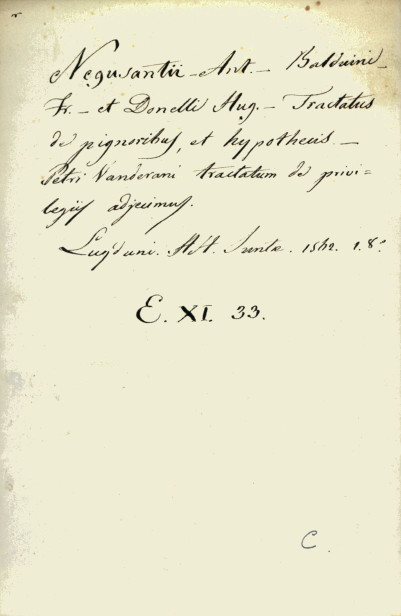 Negusantii Ant. – Balduini
Fr. – et Donelli Hug. – Tractatus
de pignoribus, et hypothecis. –
Petri Vanderani tractatum de privi=
legiis adjecimus.
Lugduni. HH. Juntæ. 1562. 1. 8°
E. XI. 33.
C.